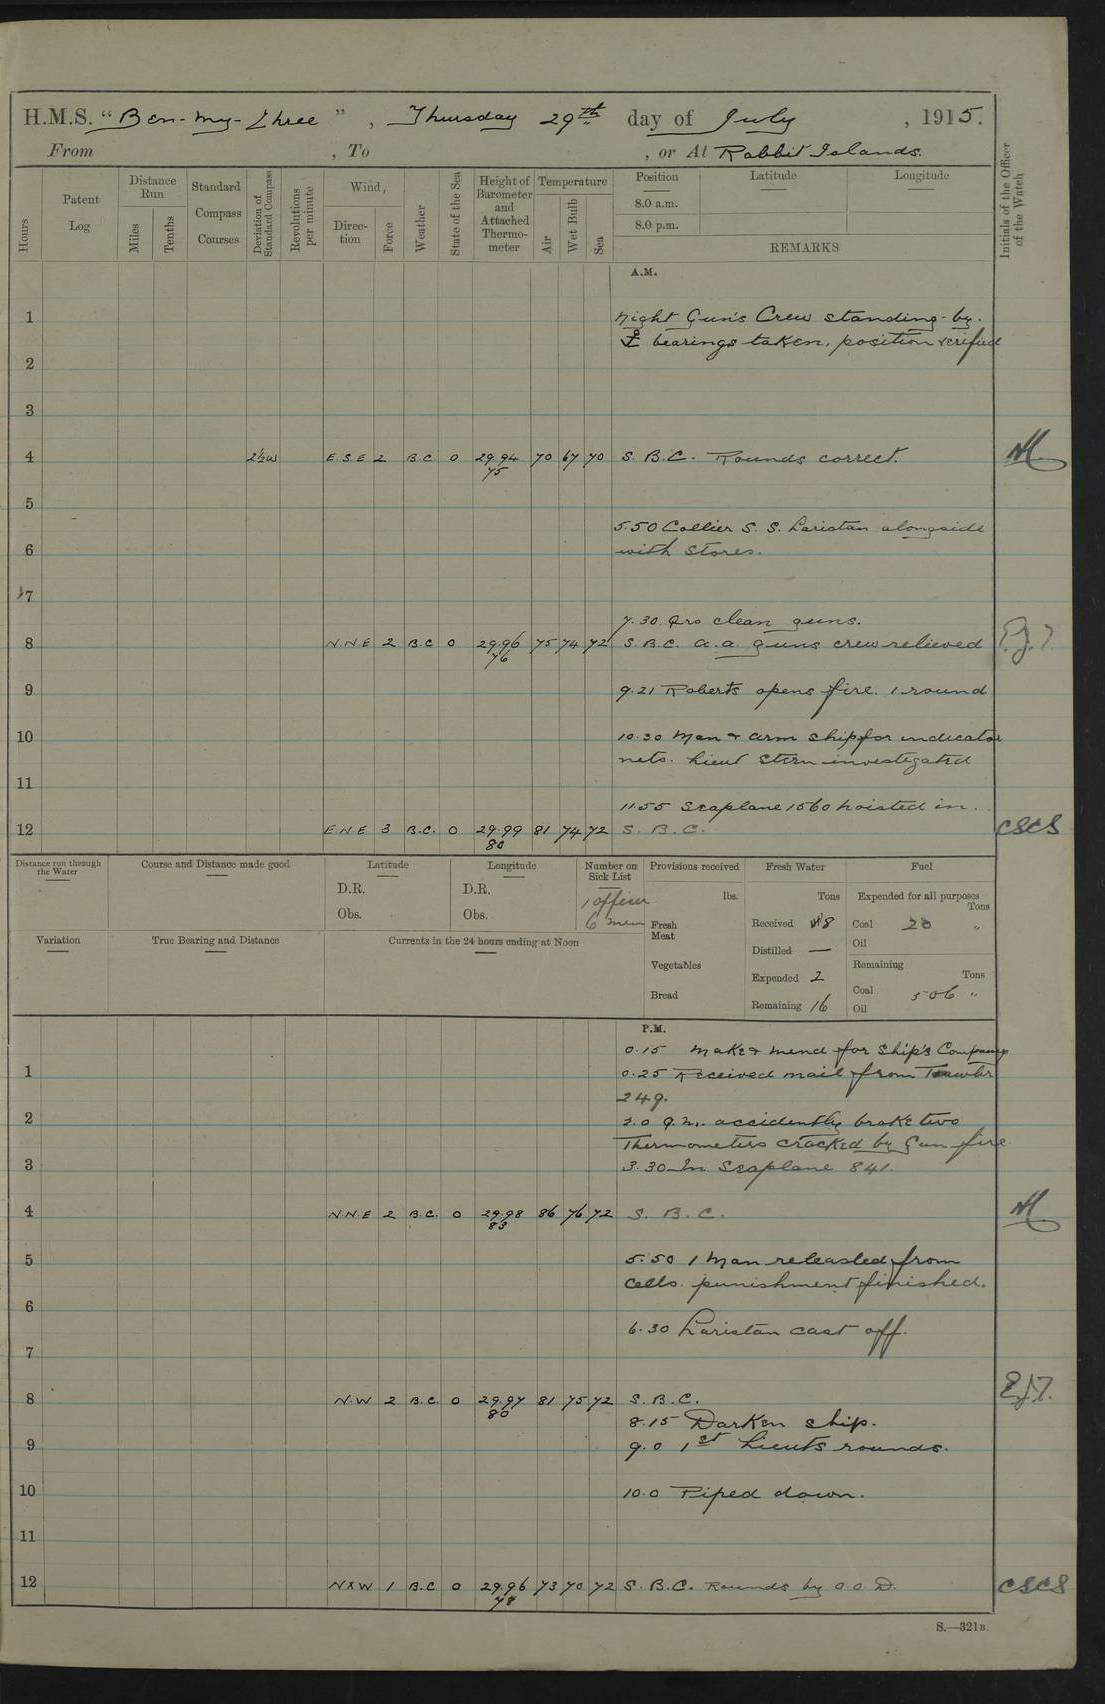 H.M.S. "Ben-my-Chree", Thursday 29th day of July, 1915.
From , To , or At Rabbit Islands.
Hours
Patent Log
Distance Run
Miles
Tenths
Standard Compass Courses
Deviation of Standard Compass
Revolutions per minute
Wind,
Direction
Force
Weather
State of the Sea
Height of Barometer and Attached Thermometer
Temperature
Air
Wet Bulb
Sea
Position
8.0 a.m.
8.0 p.m.
Latitude
Longitude
REMARKS
Initials of the Officer of the Watch
A.M.
1 Night Gun's Crew standing-by.
bearings taken, position verified
2
3
4 2½W E.S.E 2 B.C. 0 29.94 70 67 70 S.B.C. Rounds correct.
75
5
5.50 Collier S.S. Laristan alongside
6 with stores.
7
7.30 Qrs clean guns.
8 N.N.E 2 B.C 0 29.96 75 74 72 S.B.C. a.a. guns crew relieved
76
9 9.21 Roberts opens fire. 1 round
10 10.30 Man & arm ship for indicator
nets. Lieut Stern investigated
11
11.55 Seaplane 1560 hoisted in.
12 E.N.E 3 B.C. 0 29.99 81 74 72 S.B.C. CSCS
80
Distance run through the Water
Course and Distance made good
Latitude
D.R.
Obs.
Longitude
D.R.
Obs.
Number on Sick List
1 officer
6 men
Provisions received
lbs.
Fresh Meat
Vegetables
Bread
Fresh Water
Tons
Received 8
Distilled —
Expended 2
Remaining 16
Fuel
Expended for all purposes
Tons
Coal "
Oil
Remaining
Tons
Coal 506 "
Oil
Variation
True Bearing and Distance
Currents in the 24 hours ending at Noon
P.M.
0.15 Make & mend for Ship's Company
1 0.25 Received mail from Trawler
249.
2 2.0 Q.M. accidently broke two
Thermometers cracked by Gun fire
3 3.30 In Seaplane 841.
4 N.N.E 2 B.C. 0 29.98 86 76 72 S.B.C.
83
5 5.50 1 Man released from
cells. punishment finished.
6
6.30 Laristan cast off.
7
8 N.W 2 B.C. 0 29.97 81 75 72 S.B.C.
80
8.15 Darken ship.
9 9.0 1st Lieuts rounds.
10 10.0 Piped down.
11
12 NXW 1 B.C 0 29.96 73 70 72 S.B.C. Rounds by O.O.D. CSCS
78
S.—321B.